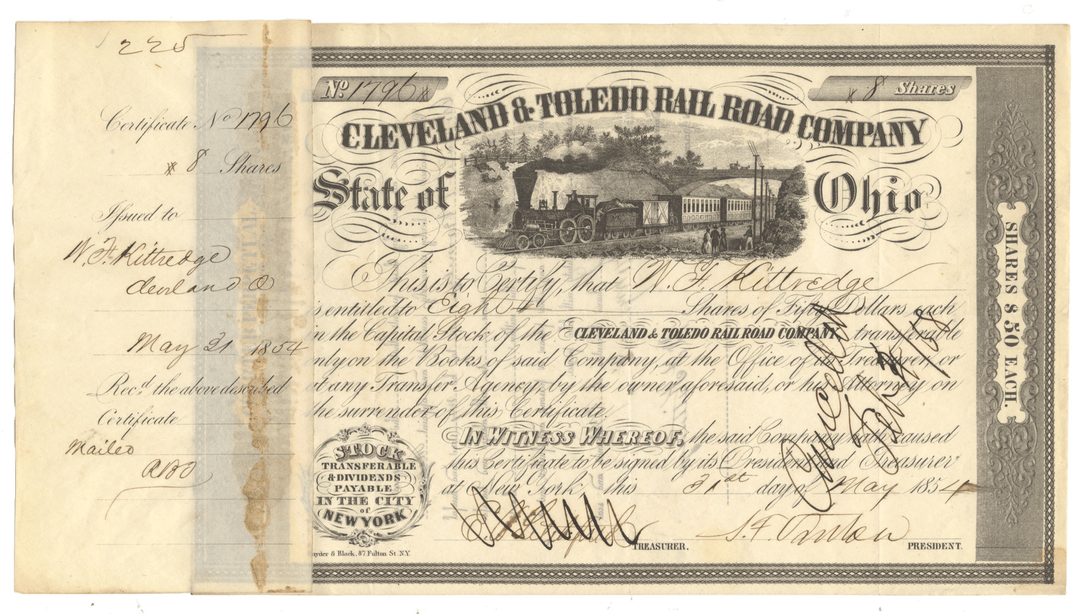 225
Certificate No 1796
8 Shares
Issued to
W. F. Kittredge
Clevland O
May 31 1854
Rec.d the above described
Certificate
Mailed
No. 1796
8 Shares
CLEVELAND & TOLEDO RAIL ROAD COMPANY
State of Ohio
This is to Certify, that W. F. Kittredge
is entitled to Eight Shares of Fifty Dollars each
in the Capital Stock of the CLEVELAND & TOLEDO RAIL ROAD COMPANY, transferable
only on the Books of said Company, at the Office of its Treasurer, or
at any Transfer Agency, by the owner aforesaid, or his Attorney on
the surrender of this Certificate.
IN WITNESS WHEREOF, the said Company have caused
this Certificate to be signed by its President and Treasurer
at New York this 31st day of May 1854
STOCK
TRANSFERABLE
& DIVIDENDS
PAYABLE
IN THE CITY
of
NEW YORK
Snyder & Black, 87 Fulton St. N.Y.
TREASURER.
PRESIDENT.
Cancelled
SHARES $50 EACH.